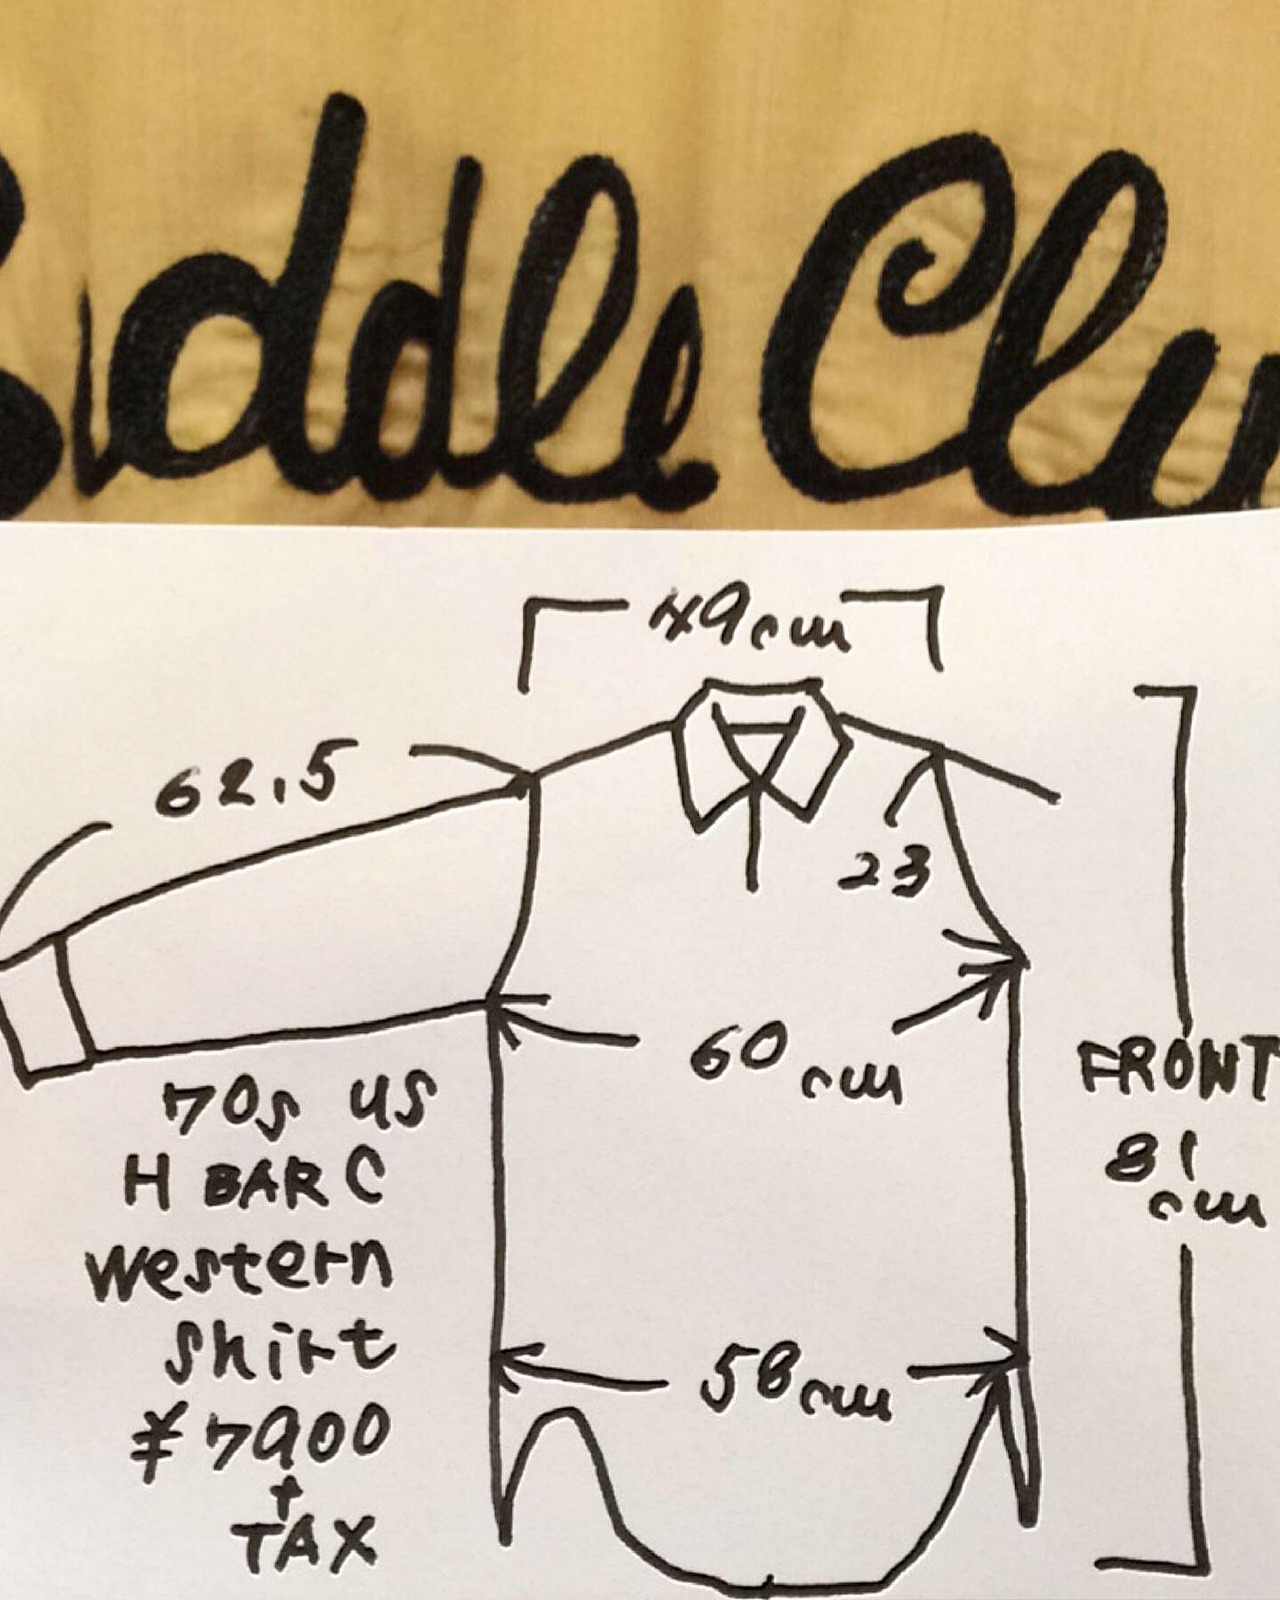 addle Clu
49cm
62.5
23
60cm
FRONT
81
cm
70s US
H BAR C
Western
Shirt
¥7900
+
TAX
58cm